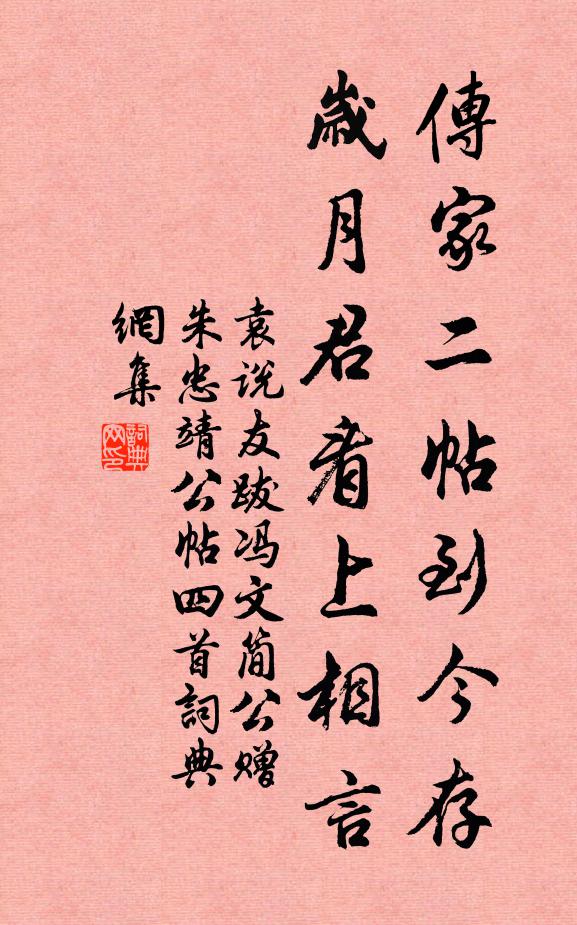 傳家二帖到今存
歲月君看上相言
袁说友跋冯文简公赠
朱忠靖公帖四首詞典
網集
詞典
网印